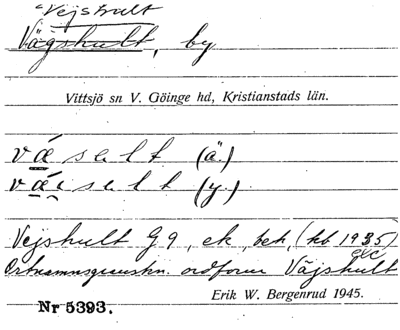 Vejshult
Vägshult, by
Vittsjö sn V. Göinge hd, Kristianstads län.
vǽselt (ä.)
vǽi̯selt (y.)
Vejshult G 9, ek, beh, (kb 1935)
exc
Ortnamnsgranskn. ordform Väjshult
Erik W. Bergenrud 1945.
Nr 5393.